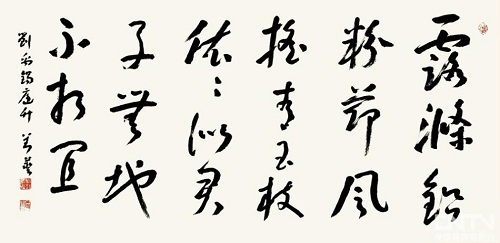 露滌鉛
粉節風
搖青玉枝
依依似君
子無地
不相宜
劉禹錫庭竹